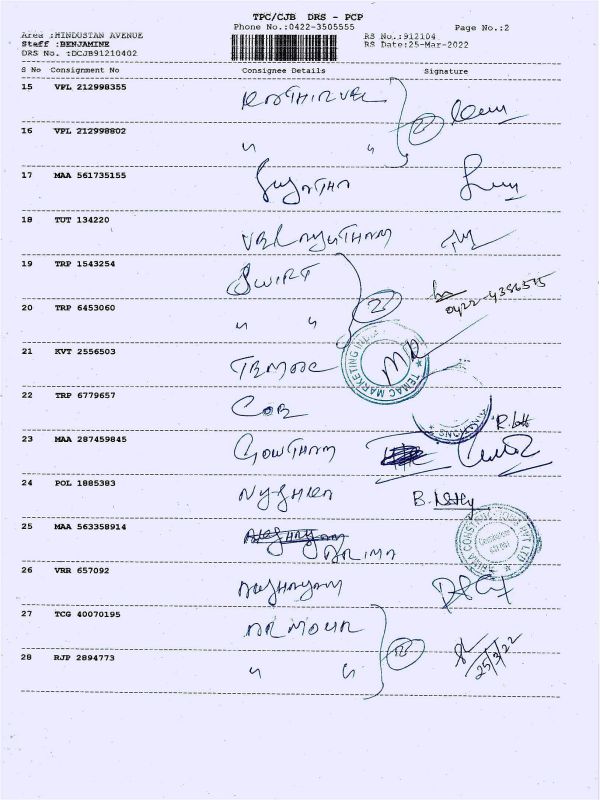 TPC/CJB DRS - PCP
Phone No.:0422-3505555 Page No.:2
Area :HINDUSTAN AVENUE RS No.:912104
Staff :BENJAMINE RS Date:25-Mar-2022
DRS No. :DCJB91210402
S No Consignment No Consignee Details Signature
15 VPL 212998355 KATHIRVEL
2
16 VPL 212998802 " "
17 MAA 561735155 Sujatha
18 TUT 134220 VELAYUTHAM
19 TRP 1543254 SWIFT
2 0422-4386515
20 TRP 6453060 " "
21 KVT 2556503 TEMAC
TEMAC MARKETING
22 TRP 6779657
23 MAA 287459845 GOWTHAM
24 POL 1885383 B.
25 MAA 563358914 ARIMA
26 VRR 657092
27 TCG 40070195 ARMOUR
25/3/22
28 RJP 2894773 " "